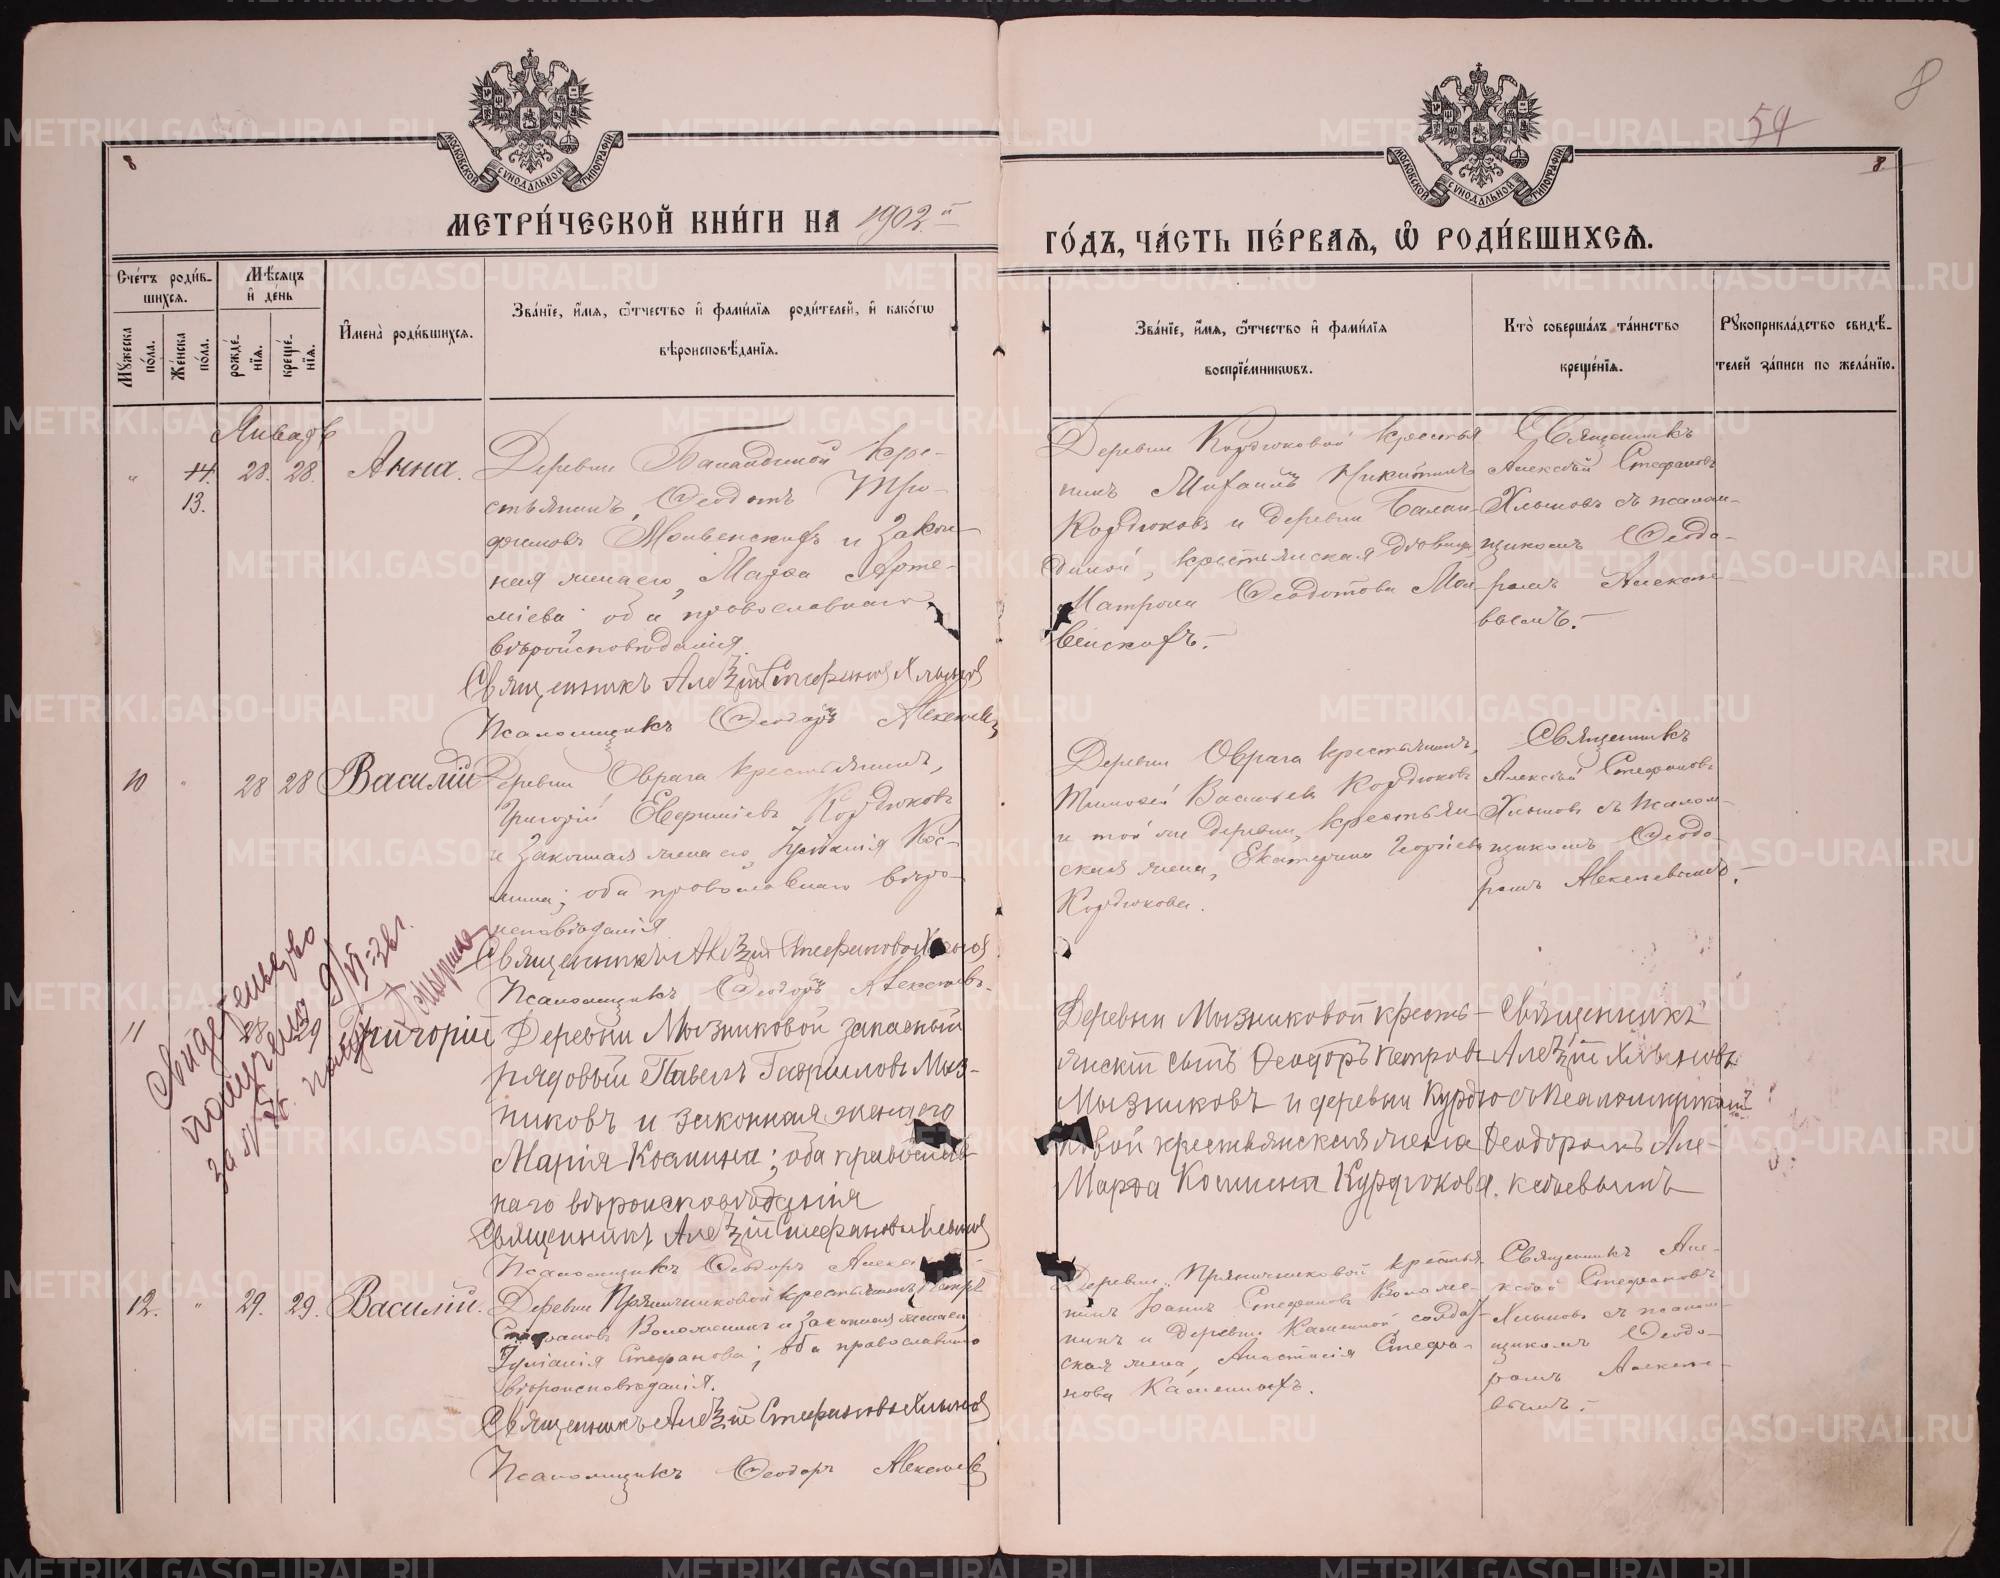 8
54
8
8
МОСКОВСКОЙ СѴНОДАЛЬНОЙ ТИПОГРАФІИ
МОСКОВСКОЙ СѴНОДАЛЬНОЙ ТИПОГРАФІИ
МЕТРИ́ЧЕСКОЙ КНИ́ГИ НА 1902й
ГО́ДЪ, ЧА́СТЬ ПЕ́РВАѦ, Ѡ РОДИ́ВШИХСѦ.
Сче́тъ роди́в-
шихсѧ.
Мꙋжеска по́ла.
Же́нска по́ла.
Мѣ́сѧцъ
и де́нь
рожде́-
нїѧ.
креще́-
нїѧ.
Имена̀ роди́вшихсѧ.
Зва́нїе, и́мѧ, ѻ҆́тчество и фами́лїѧ роди́телей, и како́гѡ
вѣроисповѣ́данїѧ.
Зва́нїе, и́мѧ, ѻ҆́тчество и фами́лїѧ
воспрїе́мникѡвъ.
Кто̀ соверша́лъ та́инство
креще́нїѧ.
Рꙋкоприкла́дство свидѣ́-
телей за́писи по жела́нїю.
Январь
" 14. 28. 28. Анна.
13.
Деревни Баландиной кре-
стьянинъ, Ѳеодотъ Тро-
фимовъ и закон-
ная жена его, Марѳа Арте-
міева; оба православнаго
вѣроисповѣданія.
Священникъ Алексій Стефановъ Хлыновъ
Псаломщикъ Ѳеодоръ Алексѣевъ
Деревни Кордюковой крестья
нинъ Михаилъ Никитинъ
Кордюковъ и деревни Балан-
диной, крестьянская дѣвица,
Матрона Ѳеодотова Мол-
венскихъ.-
Священникъ
Алексѣй Стефановъ
Хлыновъ съ псалом-
щикомъ Ѳеодо-
ромъ Алексѣе-
вымъ.-
10 " 28 28 Василій
Деревни Оврага крестьянинъ,
Григорій Кордюковъ
и законная жена его, Іуліанія Кос-
мина; оба православнаго вѣро-
исповѣданія
Священникъ Алексій Стефановъ Хлыновъ
Псаломщикъ Ѳеодоръ Алексѣевъ.
Деревни Оврага крестьянинъ,
Тимоѳей Васильевъ Кордюковъ
и той же деревни, крестьян-
ская жена, Екатерина Георгіева
Кордюкова.
Священникъ
Алексѣй Стефановъ
Хлыновъ съ псалом-
щикомъ Ѳеодо-
ромъ Алексѣевымъ.-
Свидетельство
получено 9/VI-26г.
за №
11 28 29 Григорій
Деревни Мызниковой запасный
рядовый Павелъ Гавриловъ Мыз-
никовъ и законная жена его
Марія Космина; оба православ-
наго вѣроисповѣданія
Священникъ Алексій Стефановъ Хлыновъ
Псаломщикъ Ѳеодоръ
Деревни Мызниковой кресть-
янскій сынъ Ѳеодоръ Петровъ
Мызниковъ и деревни Курдю-
ковой крестьянская жена
Марѳа Космина Курдюкова.
Священникъ
Алексій Хлыновъ
съ псаломщикомъ
Ѳеодоромъ Але-
ксѣевымъ
12. " 29. 29. Василій.
Деревни Пряничниковой крестьянинъ Петръ
Стефановъ и законная жена его
Іуліанія Стефанова; оба православнаго
вѣроисповѣданія.
Священникъ Алексій Стефановъ Хлыновъ
Псаломщикъ Ѳеодоръ Алексѣевъ
Деревни Пряничниковой крестья
нинъ Іоаннъ Стефановъ
и деревни Каменной солдат-
ская жена, Анастасія Стефа-
нова Каменныхъ.
Священникъ Але-
ксѣй Стефановъ
Хлыновъ съ псалом-
щикомъ Ѳеодо-
ромъ Алексѣе-
вымъ.-
METRIKI.GASO-URAL.RU